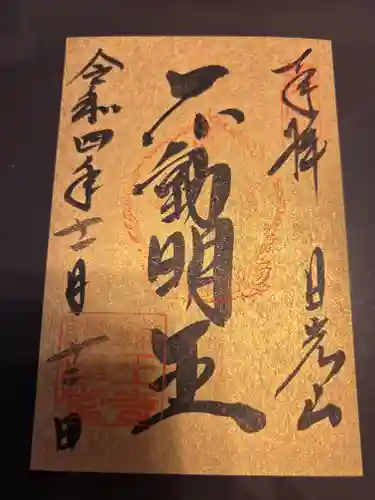 奉拝
日光山
不動明王
令和四年十二月十二日